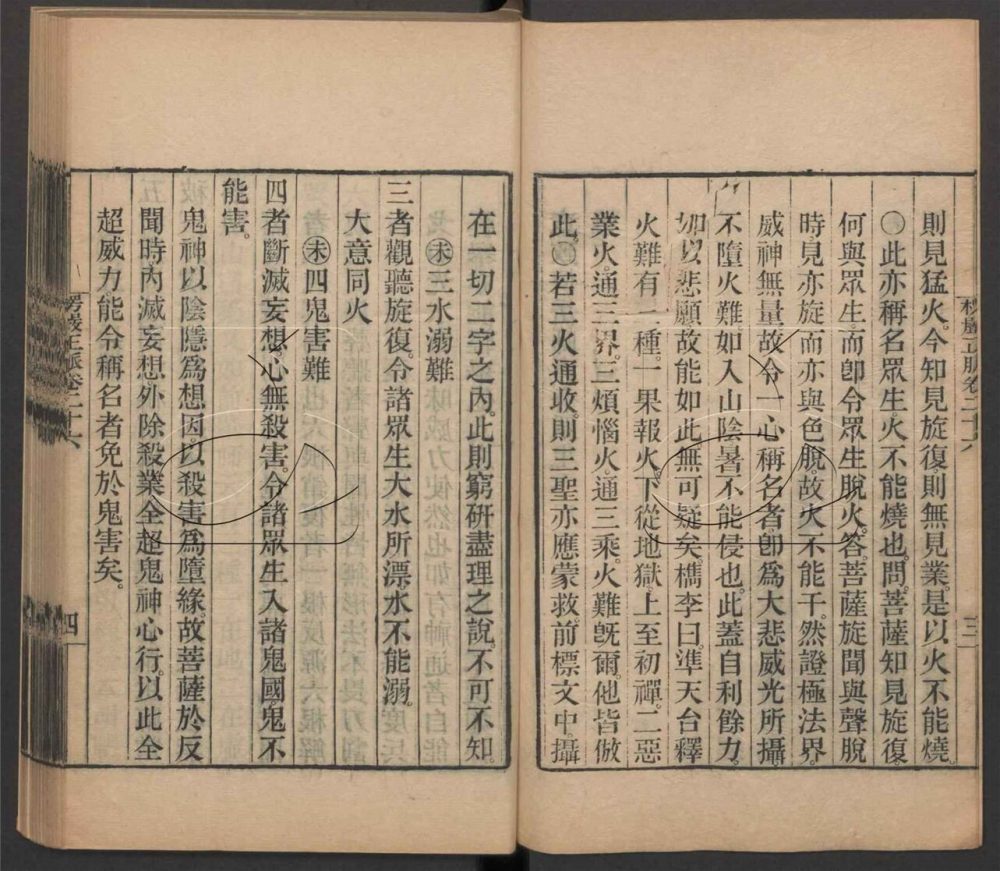 則見猛火。今知見旋復。則無見業。是以火不能燒。
此亦稱名眾生火不能燒也。問。菩薩知見旋復。
何與眾生。而卽令眾生脫火。答。菩薩旋聞與聲脫
時。見亦旋而亦與色脫。故火不能干。然證極法界。
威神無量。故令一心稱名者。卽爲大悲威光所攝。
不墮火難。如入山陰。暑不能侵也。此蓋自利餘力。
加以悲願。故能如此。無可疑矣。檇李曰。準天台釋
火難有三種。一果報火。下從地獄。上至初禪。二惡
業火。通三界。三煩惱火。通三乘。火難旣爾。他皆倣
此。若三火通收。則三聖亦應蒙救。前標文中。攝
三
在一切二字之內。此則窮硏盡理之說。不可不知。
㊍三水溺難
三者觀聽旋復。令諸眾生大水所漂。水不能溺。
大意同火
㊍四鬼害難
四者斷滅妄想。心無殺害。令諸眾生入諸鬼國。鬼不
能害。
鬼神以陰隱爲想因。以殺害爲墮緣。故菩薩於反
聞時。內滅妄想。外除殺業。全超鬼神心行。以此全
超威力。能令稱名者免於鬼害矣。
四